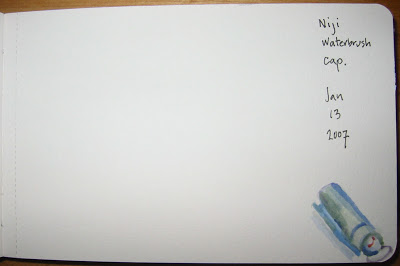 Niji
Waterbrush
Cap.
Jan
13
2007